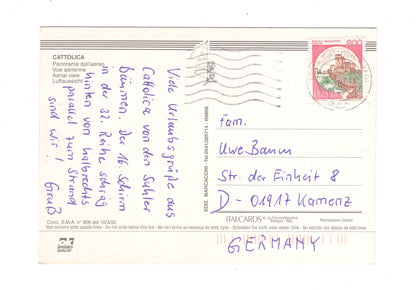 CATTOLICA
Panorama dall'aereo
Vue aérienne
Aerial view
Luftaussicht
Viele Urlaubsgrüße aus
Cattolica von den Suhler
bäumen. Der 16. Schirm
in der 32. Reihe schräg
hinten von halbrechts
parallel zum Strand
sind wir!
Gruß
Conc. S.M.A. n° 806 del 10/3/92
EDIZ. MARCACCINI - Tel. 0541/380714 - RIMINI
800
ITALIA
Fam.
Uwe Baum
Str. der Einheit 8
D - 01917 Kamenz
GERMANY
ITALCARDS
Bologna - Italy
Riproduzione Vietata
Non scrivere sotto questa linea - Do not write below this line - Ne rien écrire au-dessous de cette ligne - Schreiben Sie nicht unter dieser Zeile